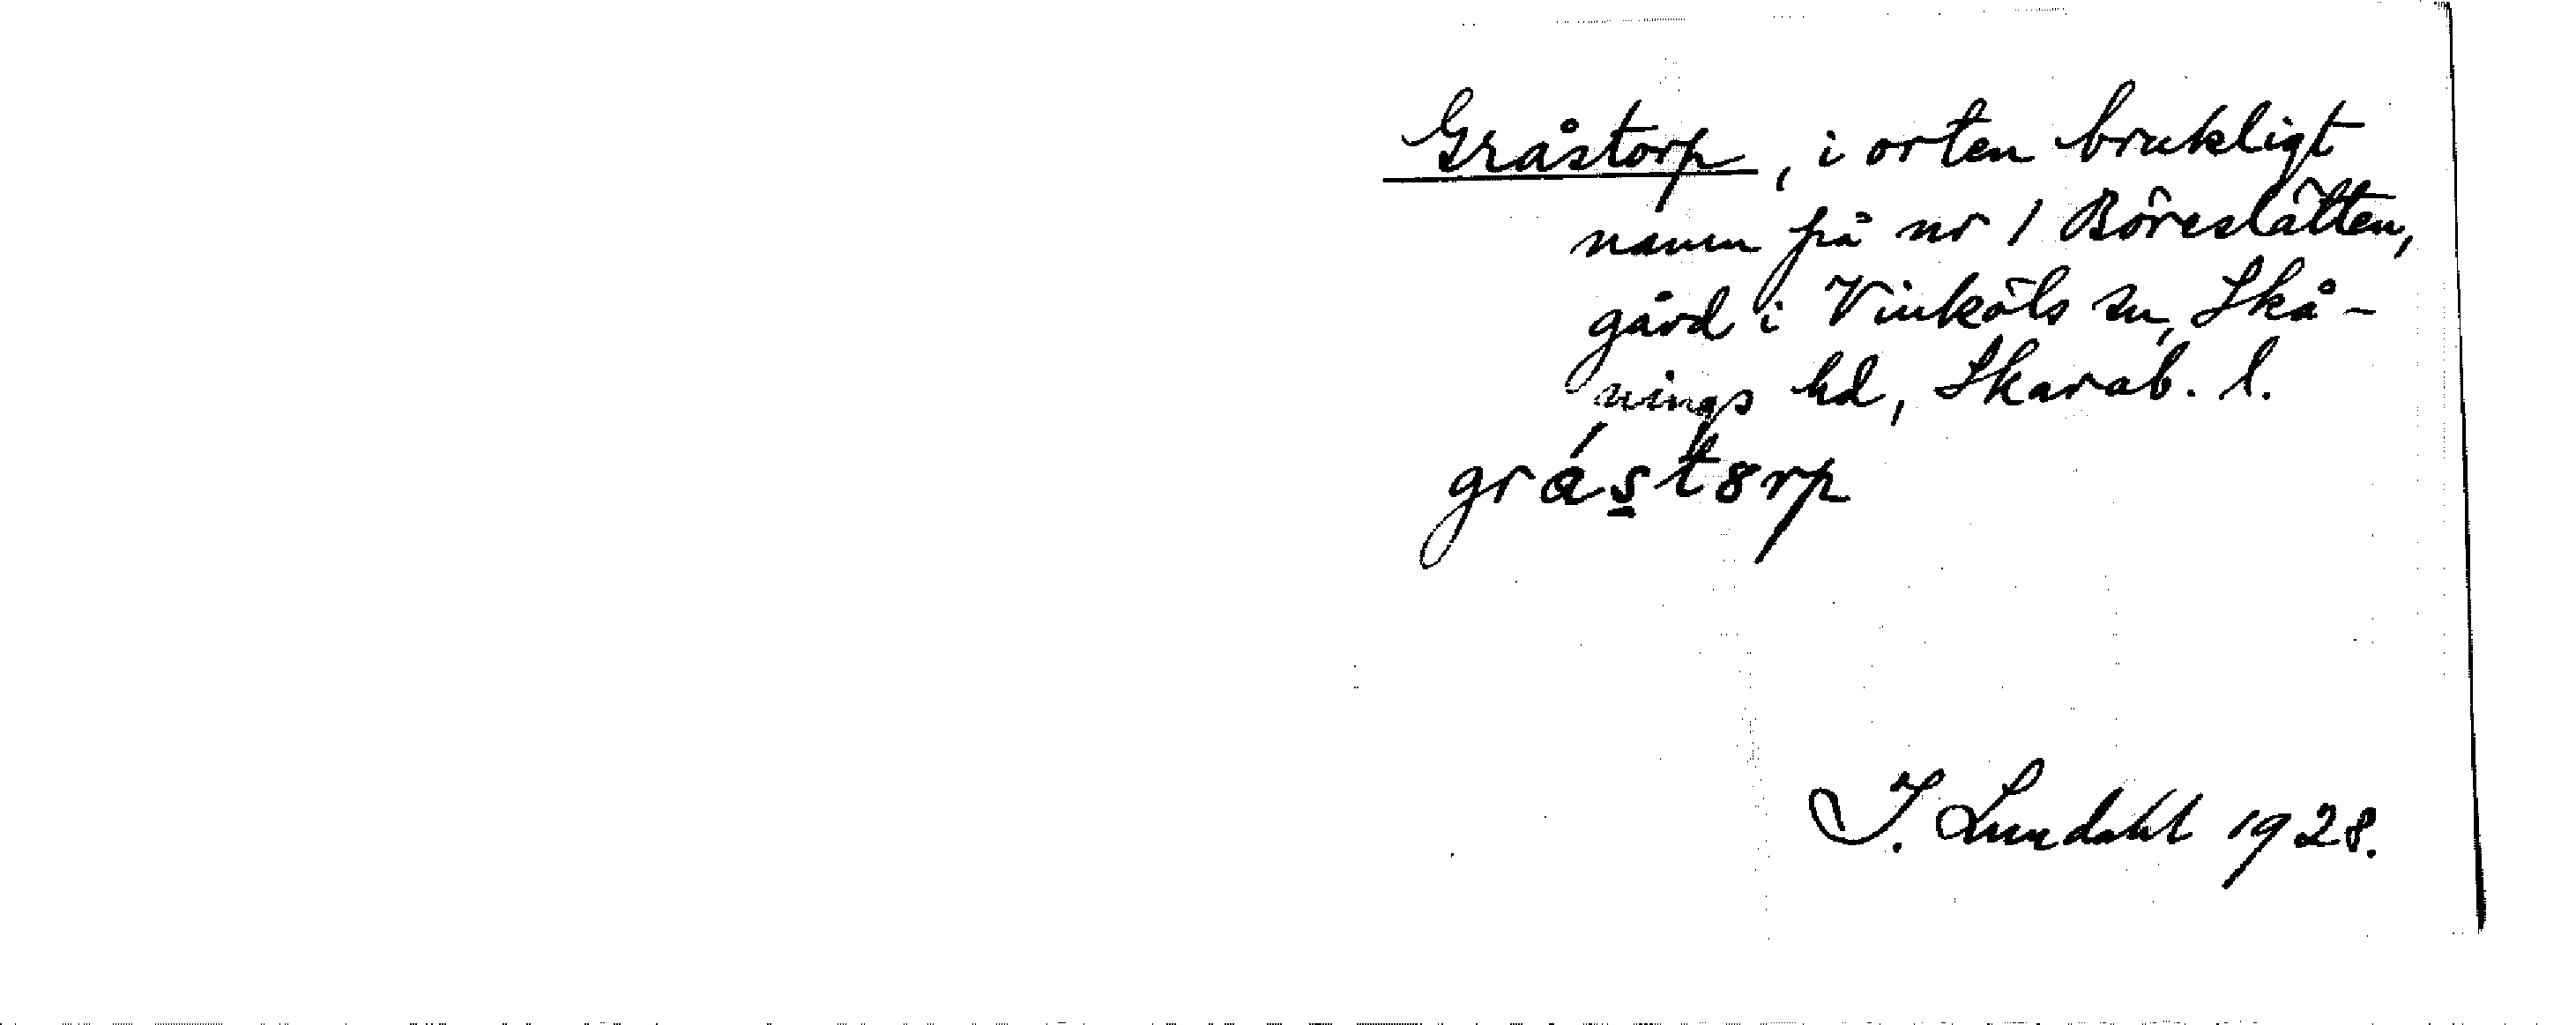 Gråstorp, i orten brukligt
namn på nr 1 Böreslätten,
gård i Vinköls sn, Skå-
nings hd, Skarab. l.
grástorp
I. Lundahl 1928.